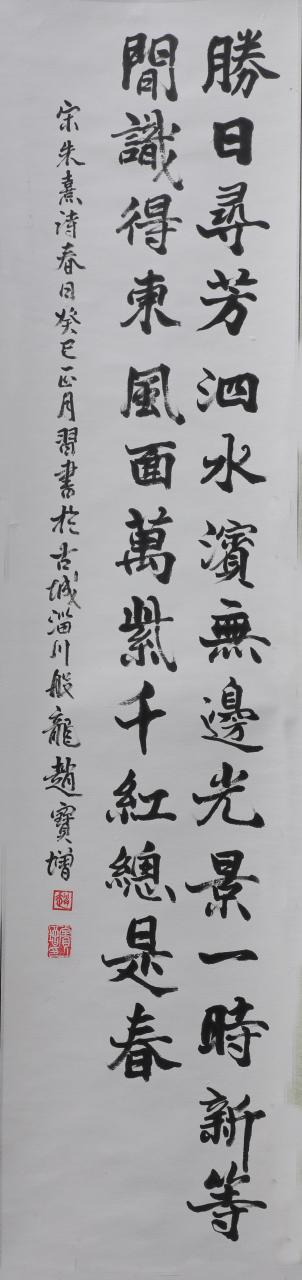 勝日尋芳泗水濱無邊光景一時新等
閒識得東風面萬紫千紅總是春
宋朱熹诗春日癸巳正月習書於古城淄川般龍趙寶增